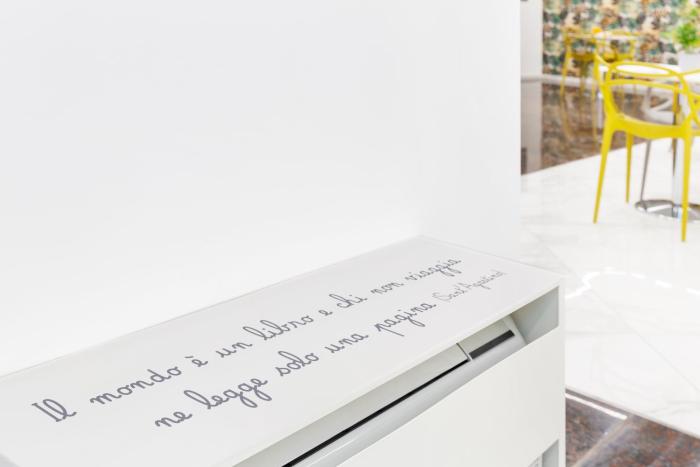 Il mondo è un libro e chi non viaggia
ne legge solo una pagina (Sant'Agostino)